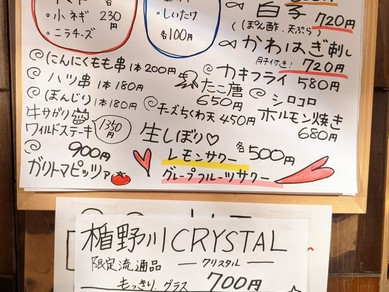 トマト
・小ネギ 230円
・ニラチーズ
しいたけ
各100円
白子 720円
(ぽん酢、天ぷら)
かわはぎ刺し
肝予付い! 720円
にんにくもも串 1本200円
ハツ串 1本180円
ぼんじり 1本180円
牛サガリ
ワイルドステーキ 1350円
900円
ガリトマピッツァ
たこ唐
650円
チーズちくわ天 450円
カキフライ 580円
シロコロ
ホルモン焼き
680円
生しぼり♡
レモンサワー
グレープフルーツサワー
各500円
楯野川CRYSTAL
限定流通品 ークリスタルー
もっきり グラス 700円